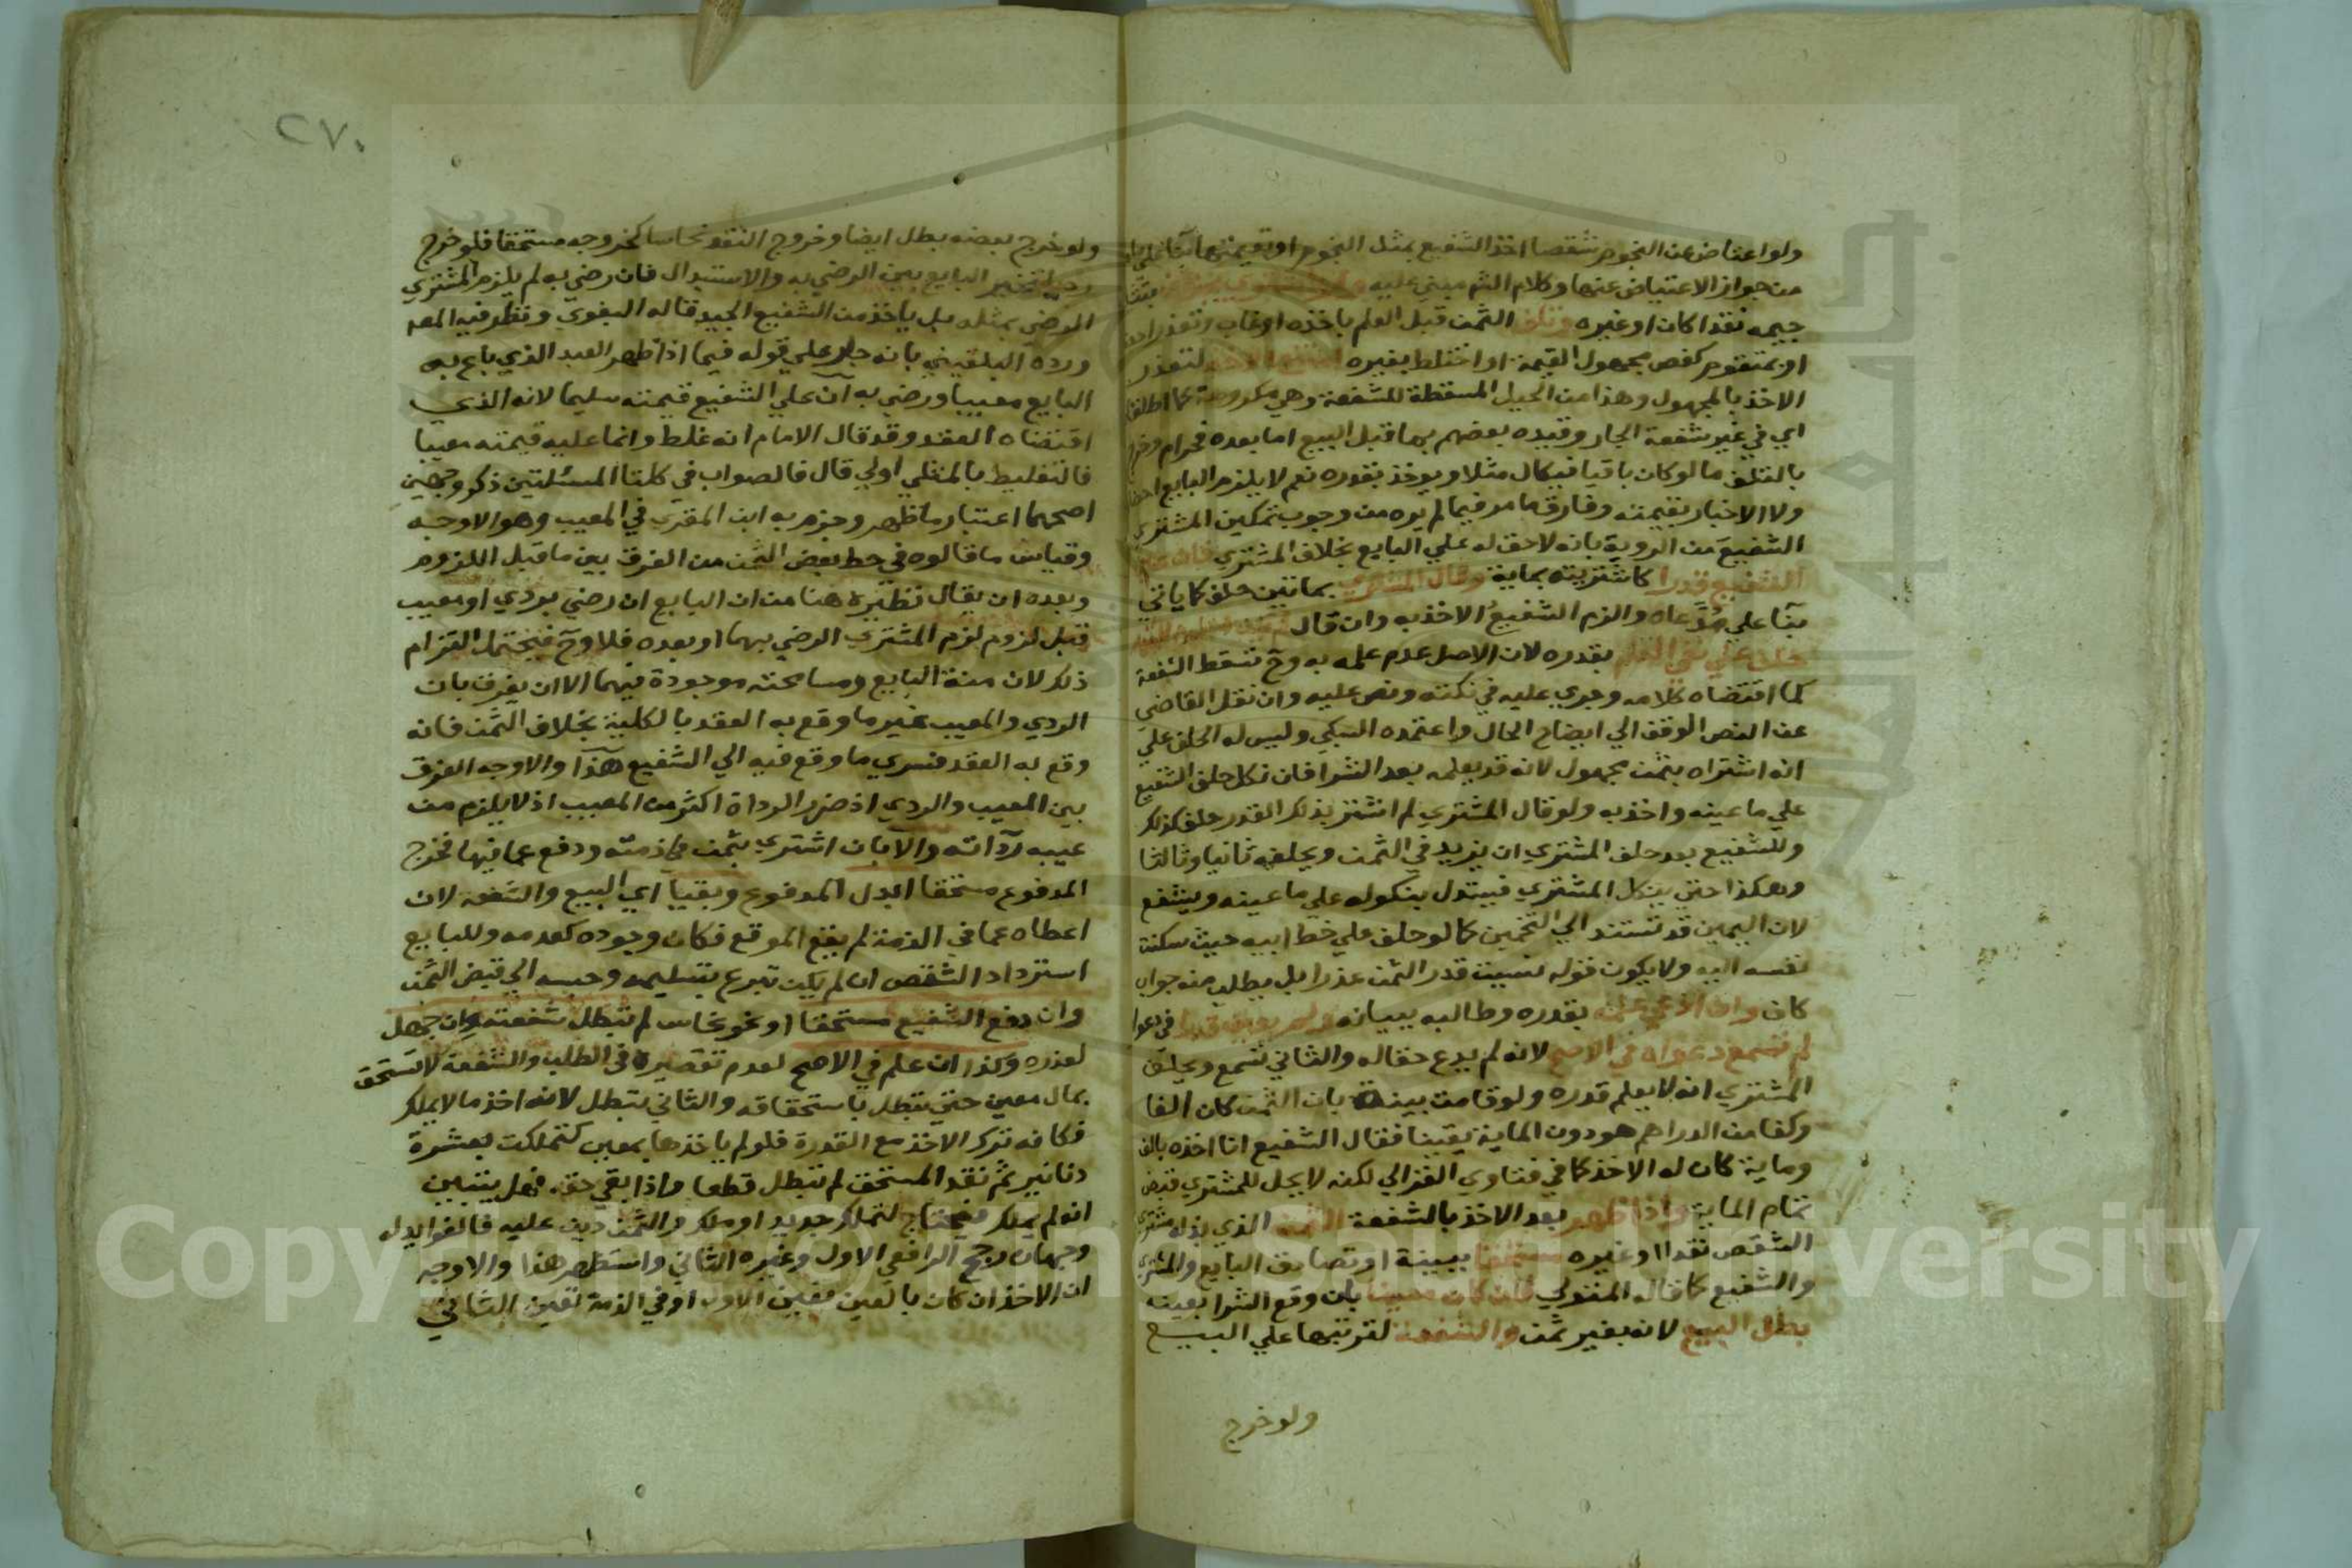 ولو اعتاض عن النجوم شقصا اخذ الشفيع بمثل النجوم او بقيمتها بنا علي
من جواز الاعتياض عنها وكلام الشم مبني عليه ولو اشتري بجزاف
جيمه نقدا كان او غيره وتلف الثمن قبل العلم باخذه او غاب وتعذر
او بمتقوم كفص مجهول القيمة او اختلط بغيره امتنع الاخذ لتعذر
الاخذ بالمجهول وهذا من الحيل المسقطة للشفعة وهي مكروهة كما اطلقا
اي في غير شفعة الجار وقيده بعضهم بما قبل البيع اما بعده فحرام وخرج
بالتلف ما لو كان باقيا فيكال مثلا ويوخذ بقدره نعم لا يلزم البايع
ولا الاخبار بقيمته وفارق ما مر فيما لم يره من وجوب تمكين المشتري
الشفيع من الروية بانه لا حق له علي البايع بخلاف المشتري فان عين
الشفيع قدرا كاشتريته بماية وقال المشتري بماتين حلف كما ياتي
بنا علي مدعاه والزم الشفيع الاخذ به وان قال
حلف علي نفي العلم بقدره لان الاصل عدم علمه به وح تسقط الشفعة
كما اقتضاه كلامه وجري عليه في نكته ونص عليه وان نقل القاضي
عن النص الوقف الي ايضاح الحال واعتمده السبكي وليس له الحلف علي
انه اشتراه بثمن مجهول لانه قد يعلمه بعد الشرا فان نكل حلف الشفيع
علي ما عينه واخذ به ولو قال المشتري لم اشتر بذلك القدر حلف كذلك
وللشفيع بعد حلف المشتري ان يزيد في الثمن ويحلفه ثانيا وثالثا
وهكذا حتي ينكل المشتري فيستدل بنكوله علي ما عينه ويشفع
لان اليمين قد تستند الي التخمين كما لو حلف علي خط ابيه حيث سكنت
نفسه اليه ولا يكون قوله نسيت قدر الثمن عذرا بل يطلب منه جواب
كاف وان ادعي علمه بقدره وطالبه ببيانه ولم يعين قدرا في دعواه
لم تسمع دعواه في الاصح لانه لم يدع حقا له والثاني تسمع ويحلف
المشتري انه لا يعلم قدره ولو قامت بينة بان الثمن كان الفا
وكفا من الدراهم هو دون الماية يقينا فقال الشفيع انا اخذه بالف
وماية كان له الاخذ كما في فتاوي الغزالي لكنه لا يحل للمشتري قبض
تمام الماية واذا ظهر بعد الاخذ بالشفعة الثمن الذي بذله مشتري
الشقص نقدا او غيره مستحقا ببينة او تصادق البايع والمشتري
والشفيع كما قاله المتولي فان كان معينا بان وقع الشرا بعينه
بطل البيع لانه بغير ثمن والشفعة لترتبها علي البيع
ولو خرج
٢٧٠
ولو خرج بعضه بطل ايضا وخروج النقد نحاسا كخروجه مستحقا فلو خرج
رديا تخير البايع بين الرضي به والاستبدال فان رضي به لم يلزم المشتري
الرضي بمثله بل ياخذ من الشفيع الجيد قاله البغوي ونظر فيه المصه
ورده البلقيني بانه جار علي قوله فيما اذا ظهر العبد الذي باع به
البايع معيبا ورضي به ان علي الشفيع قيمته سليما لانه الذي
اقتضاه العقد وقد قال الامام انه غلط وانما عليه قيمته معيبا
فالتغليط بالمثلي اولي قال فالصواب في كلتا المسئلتين ذكر وجهين
اصحهما اعتبار ما ظهر وجزم به ابن المقري في المعيب وهو الاوجه
وقياس ما قالوه في حط بعض الثمن من الفرق بين ما قبل اللزوم
وبعده ان يقال نظيره هنا من ان البايع ان رضي بردي او معيب
قبل لزوم لزم المشتري الرضي بهما او بعده فلا وح فيحتمل التزام
ذلك لان منة البايع ومسامحته موجودة فيهما الا ان يفرق بان
الردي والمعيب غير ما وقع به العقد بالكلية بخلاف الثمن فانه
وقع به العقد فسري ما وقع فيه الي الشفيع هذا والاوجه الفرق
بين المعيب والردي اذ ضرر الرداة اكثر من المعيب اذ لا يلزم من
عيبه رداته والا بان اشتري بثمن في ذمته ودفع عما فيها فخرج
المدفوع مستحقا ابدل المدفوع وبقيا اي البيع والشفعة لان
اعطاه عما في الذمة لم يقع الموقع فكان وجوده كعدمه وللبايع
استرداد الشقص ان لم يكن تبرع بتسليمه وحبسه الي قبض الثمن
وان دفع الشفيع مستحقا او نحو نحاس لم تبطل شفعته وان جهل
لعذره وكذا ان علم في الاصح لعدم تقصيره في الطلب والشفعة لا تستحق
بمال معين حتي تبطل باستحقاقه والثاني تبطل لانه اخذ ما لا يملك
فكانه ترك الاخذ مع القدرة فلو لم ياخذها بمعين كتملكت بعشرة
دنانير ثم نقد المستحق لم تبطل قطعا واذا بقي حقه فهل يتبين
انه لم يملك فيحتاج لتملك جديد او ملك والثمن دين عليه فالفوايد له
وجهان رجح الرافعي الاول وغيره الثاني واستظهر هذا والاوجه
ان الاخذ ان كان بالعين تعين الاول او في الذمة تعين الثاني